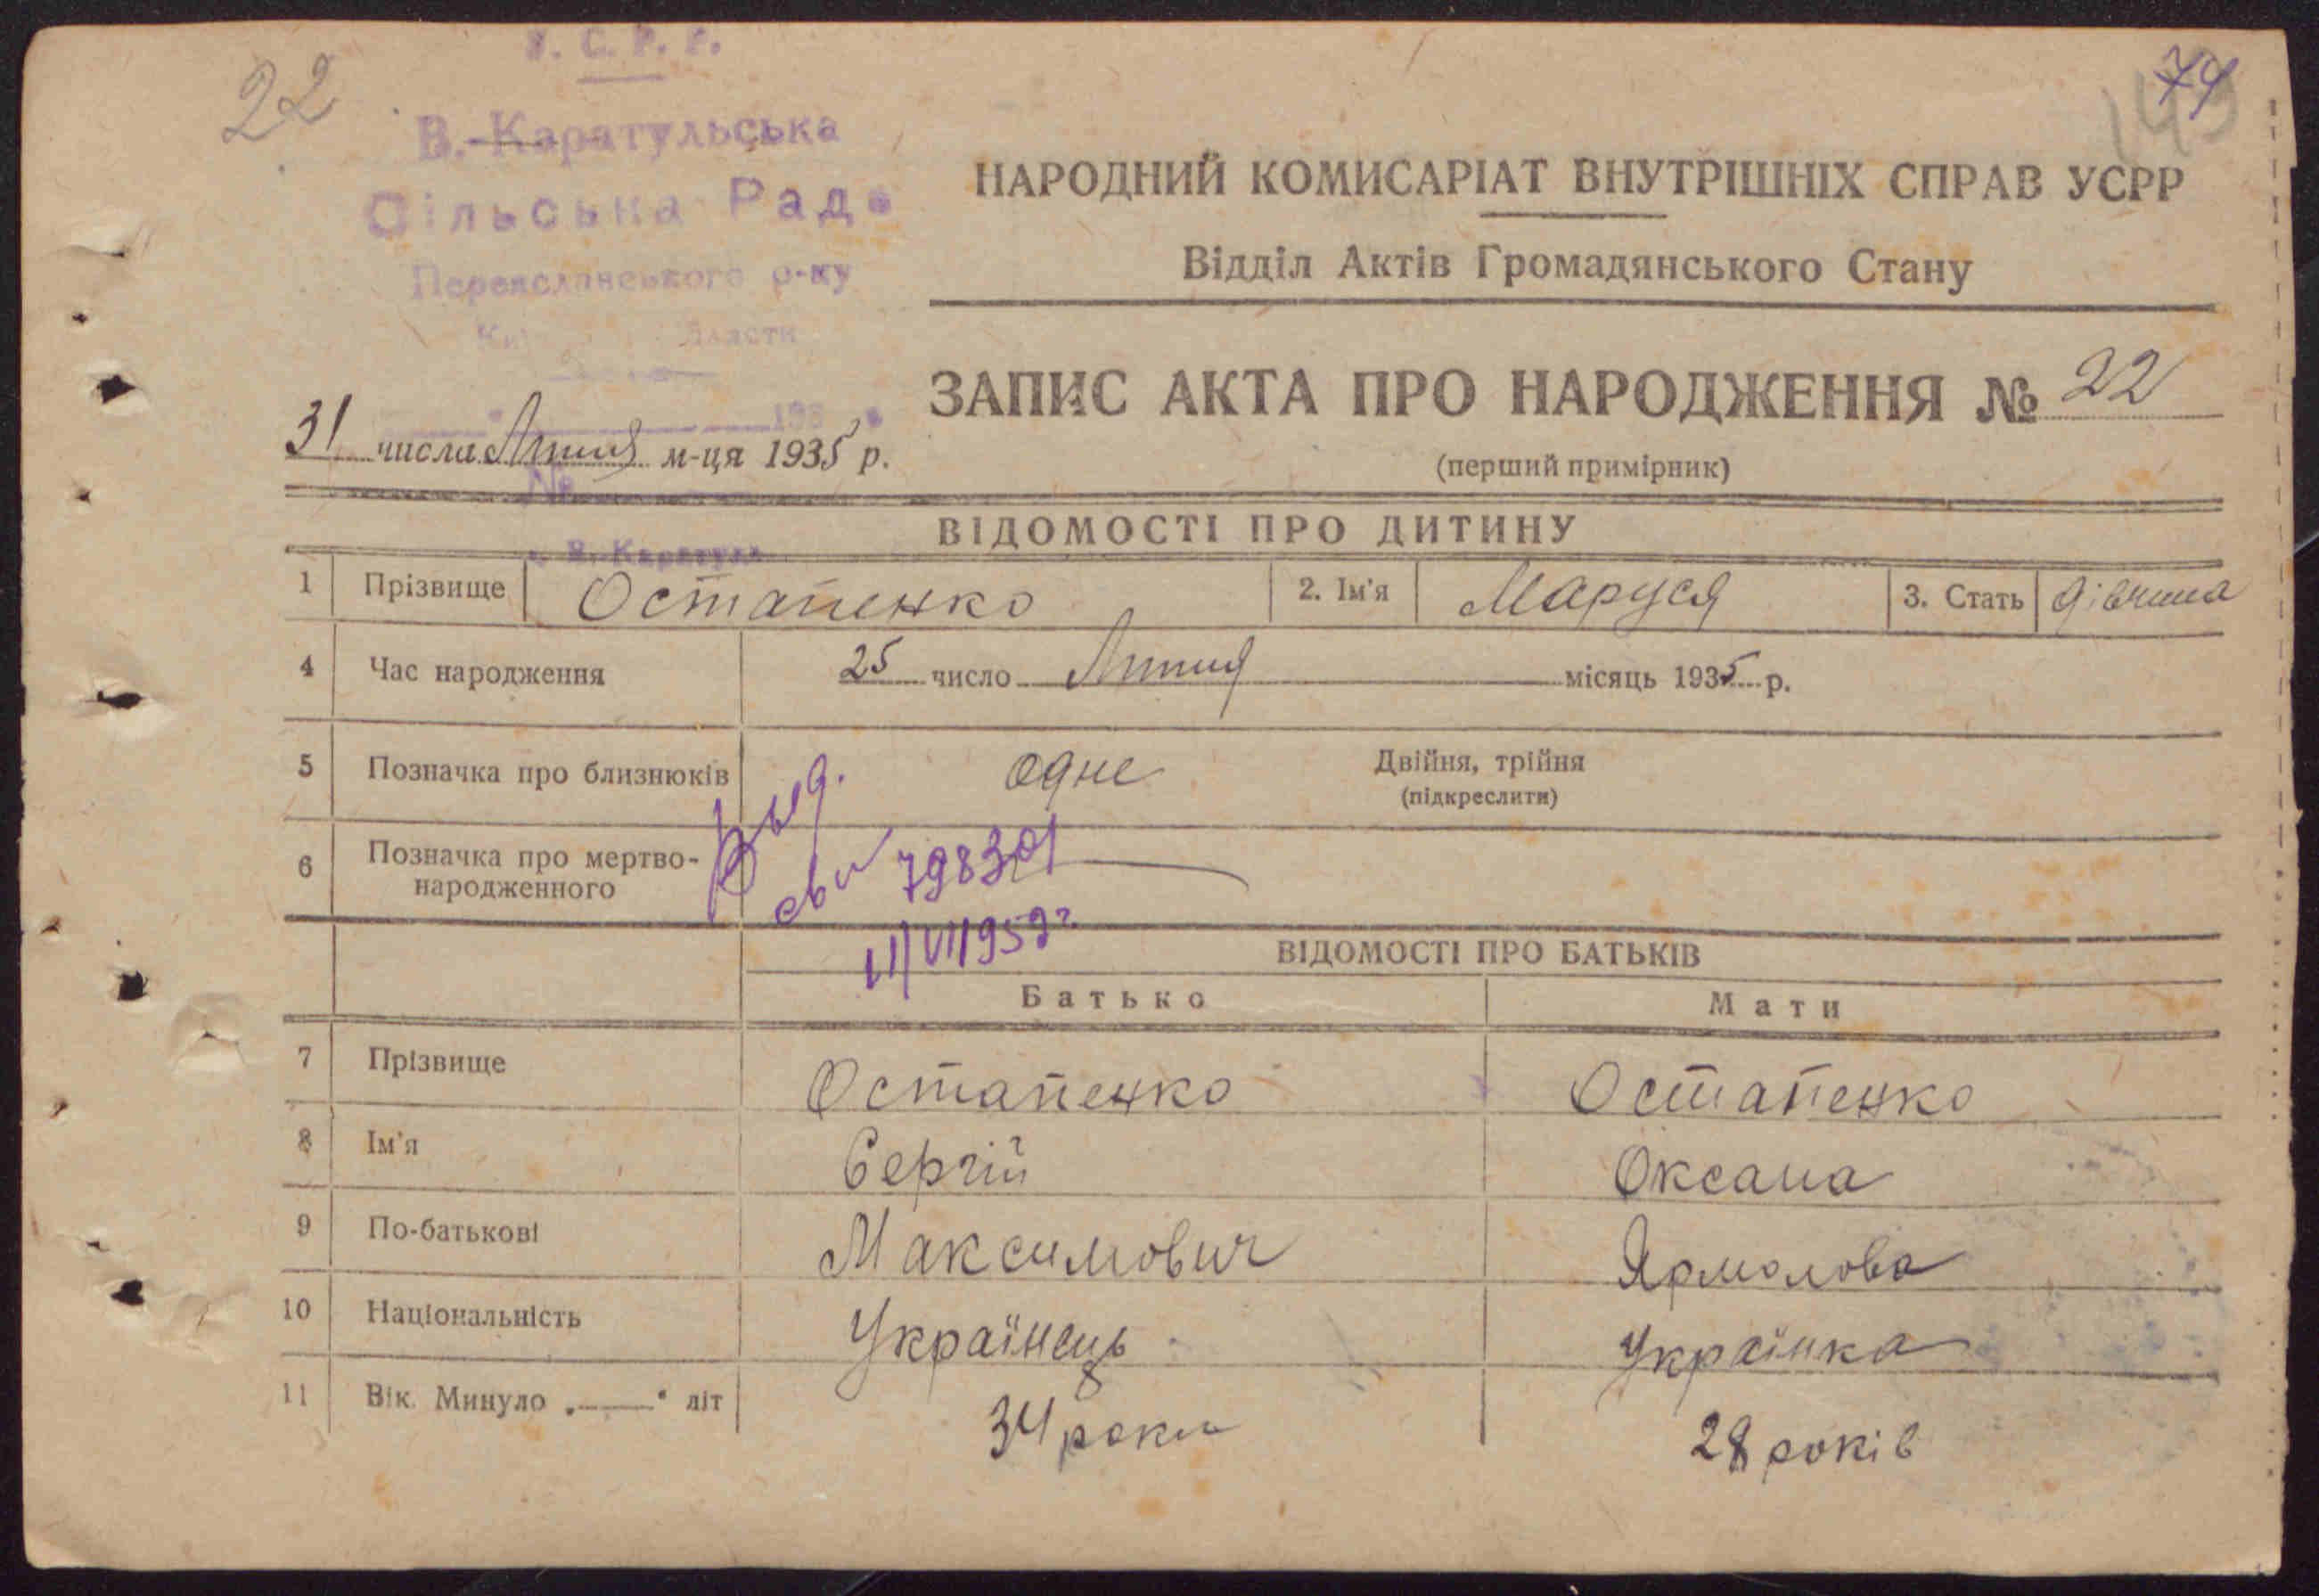 22
У. С. Р. Р.
74
143
В.-Каратульська
Сільська Рада
Переяславського р-ну
НАРОДНИЙ КОМИСАРІАТ ВНУТРІШНІХ СПРАВ УСРР
Відділ Актів Громадянського Стану
ЗАПИС АКТА ПРО НАРОДЖЕННЯ № 22
(перший примірник)
31 числа Липня м-ця 1935 р.
№
ВІДОМОСТІ ПРО ДИТИНУ
В. Каратул
1 Прізвище Остапенко 2. Ім'я Маруся 3. Стать дівчина
4 Час народження 25 число Липня місяць 1935 р.
5 Позначка про близнюків одне Двійня, трійня
(підкреслити)
6 Позначка про мертво-
народженного
Выд.
св 798301
11/VI 1959 г
ВІДОМОСТІ ПРО БАТЬКІВ
Батько Мати
7 Прізвище Остапенко Остапенко
8 Ім'я Сергій Оксана
9 По-батькові Максимович Ярмолова
10 Національність Українець Українка
11 Вік. Минуло „——“ літ 34 роки 28 років